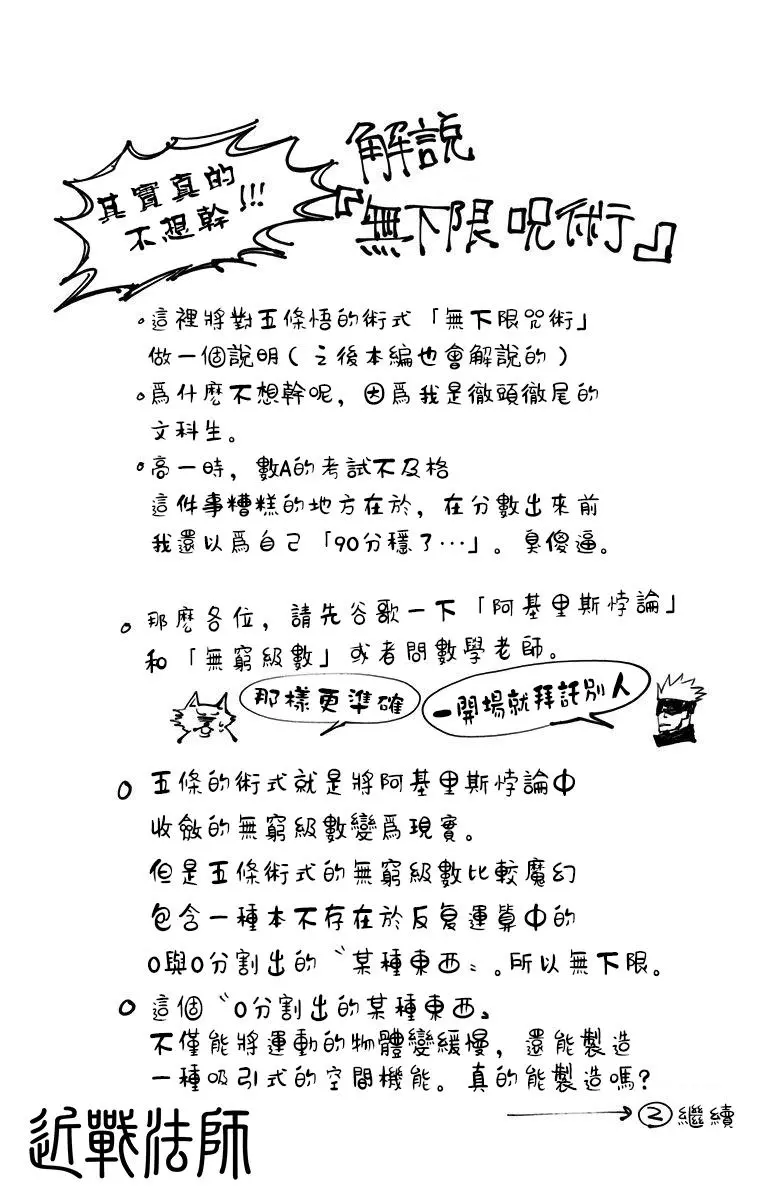 其實真的
不想幹!!!
解説
『無下限呪術』
。這裡將對五條悟的術式「無下限咒術」
做一個說明(之後本編也會解說的)
。爲什麼不想幹呢,因爲我是徹頭徹尾的
文科生。
。高一時,數A的考試不及格
這件事糟糕的地方在於,在分數出來前
我還以爲自己「90分穩了…」。臭傻逼。
。那麼各位,請先谷歌一下「阿基里斯悖論」
和「無窮級數」或者問數學老師。
那樣更準確
一開場就拜託別人
。五條的術式就是將阿基里斯悖論中
收斂的無窮級數變爲現實。
但是五條術式的無窮級數比較魔幻
包含一種本不存在於反复運算中的
0與0分割出的〝某種東西〟。所以無下限。
。這個〝0分割出的某種東西〟
不僅能將運動的物體變緩慢,還能製造
一種吸引式的空間機能。真的能製造嗎?
→②繼續
近戰法師